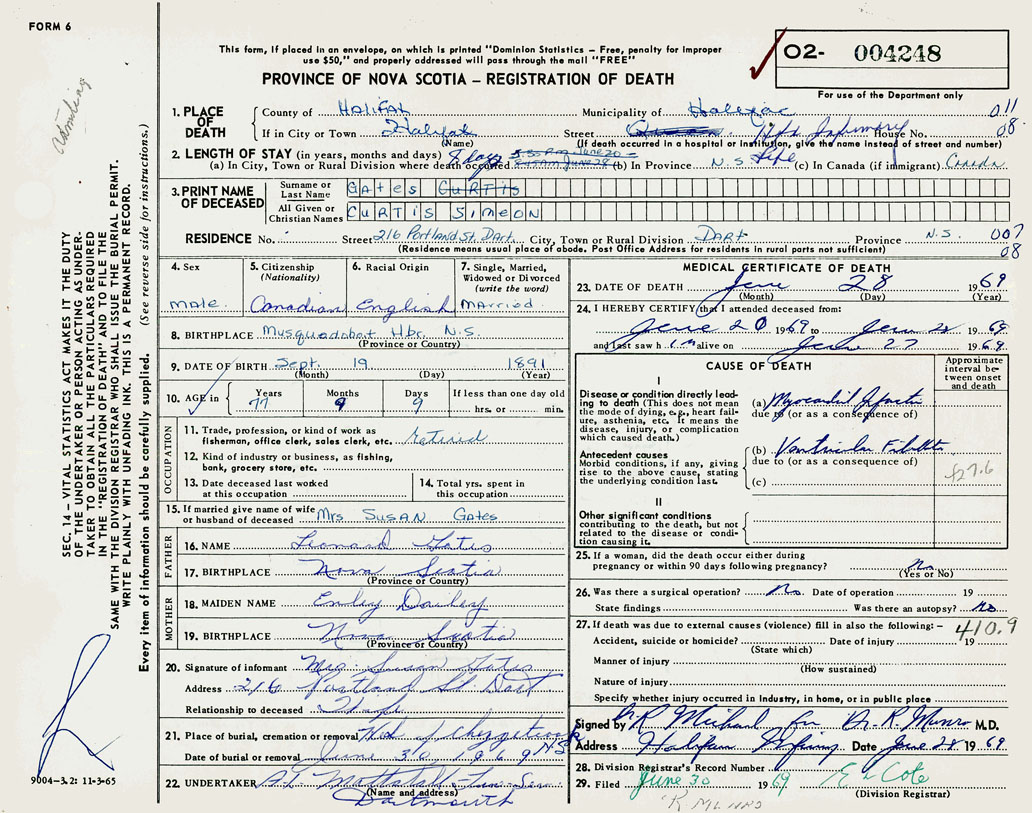 FORM 6
This form, if placed in an envelope, on which is printed "Dominion Statistics – Free, penalty for improper
use $50," and properly addressed will pass through the mail "FREE"
PROVINCE OF NOVA SCOTIA – REGISTRATION OF DEATH
O2- 004248
For use of the Department only
1. PLACE OF DEATH
County of HALIFAX Municipality of Halifax 011
If in City or Town Halifax Street Infirmary House No. 08.
(Name) (If death occurred in a hospital or institution, give the name instead of street and number)
2. LENGTH OF STAY (in years, months and days) 8 days
(a) In City, Town or Rural Division where death occurred (b) In Province N.S Life (c) In Canada (if immigrant) Canada
3. PRINT NAME OF DECEASED
Surname or Last Name Gates CURTIS
All Given or Christian Names CURTIS SIMEON
RESIDENCE No. Street 216 Portland St. Dart. City, Town or Rural Division DART Province N.S. 007
(Residence means usual place of abode. Post Office Address for residents in rural parts not sufficient) 08
4. Sex
MALE.
5. Citizenship
(Nationality)
Canadian
6. Racial Origin
English
7. Single, Married,
Widowed or Divorced
(write the word)
MARRIED
8. BIRTHPLACE Musquodobot Hbr. N.S.
(Province or Country)
9. DATE OF BIRTH Sept. 19 1891
(Month) (Day) (Year)
10. AGE in
Years Months Days If less than one day old
77 9 9 hrs. or min.
OCCUPATION
11. Trade, profession, or kind of work as
fisherman, office clerk, sales clerk, etc. retired
12. Kind of industry or business, as fishing,
bank, grocery store, etc.
13. Date deceased last worked
at this occupation
14. Total yrs. spent in
this occupation
15. If married give name of wife
or husband of deceased Mrs SUSAN Gates
FATHER
16. NAME Leonard Gates
17. BIRTHPLACE Nova Scotia
(Province or Country)
MOTHER
18. MAIDEN NAME Emley Dailey
19. BIRTHPLACE Nova Scotia
(Province or Country)
20. Signature of informant Mrs. Susan Gates
Address 216 Portland St Dart
Relationship to deceased
21. Place of burial, cremation or removal N.S
Date of burial or removal June 30 1969
22. UNDERTAKER
(Name and address)
Dartmouth
MEDICAL CERTIFICATE OF DEATH
23. DATE OF DEATH June 28 1969
(Month) (Day) (Year)
24. I HEREBY CERTIFY that I attended deceased from:
June 20 1969 to June 28 1969
and last saw him alive on June 27 1969
CAUSE OF DEATH
Approximate
interval be-
tween onset
and death
I
Disease or condition directly lead-
ing to death (This does not mean
the mode of dying, e.g., heart fail-
ure, asthenia, etc. It means the
disease, injury, or complication
which caused death.)
(a) Myocardial
due to (or as a consequence of)
Antecedent causes
Morbid conditions, if any, giving
rise to the above cause, stating
the underlying condition last.
(b) Ventricular
due to (or as a consequence of)
(c)
II
Other significant conditions
contributing to the death, but not
related to the disease or condi-
tion causing it.
25. If a woman, did the death occur either during
pregnancy or within 90 days following pregnancy? No
(Yes or No)
26. Was there a surgical operation? No. Date of operation 19
State findings Was there an autopsy? No
27. If death was due to external causes (violence) fill in also the following: – 410.9
Accident, suicide or homicide? Date of injury 19
(State which)
Manner of injury
(How sustained)
Nature of injury
Specify whether injury occurred in Industry, in home, or in public place
Signed by for K. Munro M.D.
Address Halifax Date June 28 1969
28. Division Registrar's Record Number
29. Filed June 30 1969 Cote
(Division Registrar)
K. MUNRO
SEC. 14 – VITAL STATISTICS ACT MAKES IT THE DUTY
OF THE UNDERTAKER OR PERSON ACTING AS UNDER-
TAKER TO OBTAIN ALL THE PARTICULARS REQUIRED
IN THE "REGISTRATION OF DEATH" AND TO FILE THE
SAME WITH THE DIVISION REGISTRAR WHO SHALL ISSUE THE BURIAL PERMIT.
WRITE PLAINLY WITH UNFADING INK. THIS IS A PERMANENT RECORD.
Every item of information should be carefully supplied. (See reverse side for instructions.)
9004-3.2: 11-3-65